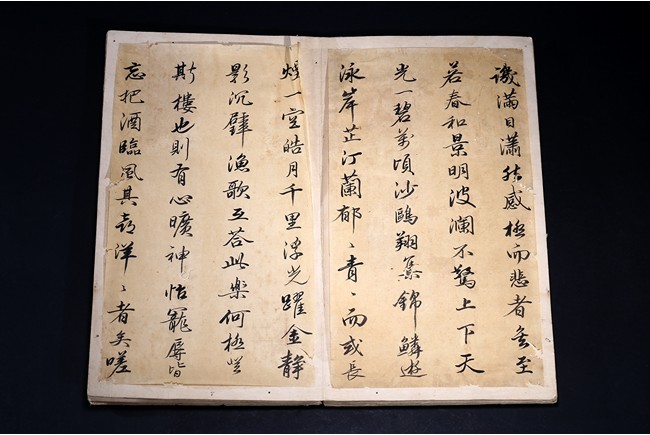 譏滿目瀟然感極而悲者矣至
若春和景明波瀾不驚上下天
光一碧萬頃沙鷗翔集錦鱗遊
泳岸芷汀蘭郁〻青〻而或長
煙一空皓月千里浮光躍金靜
影沉璧漁歌互答此樂何極登
斯樓也則有心曠神怡寵辱皆
忘把酒臨風其喜洋〻者矣嗟